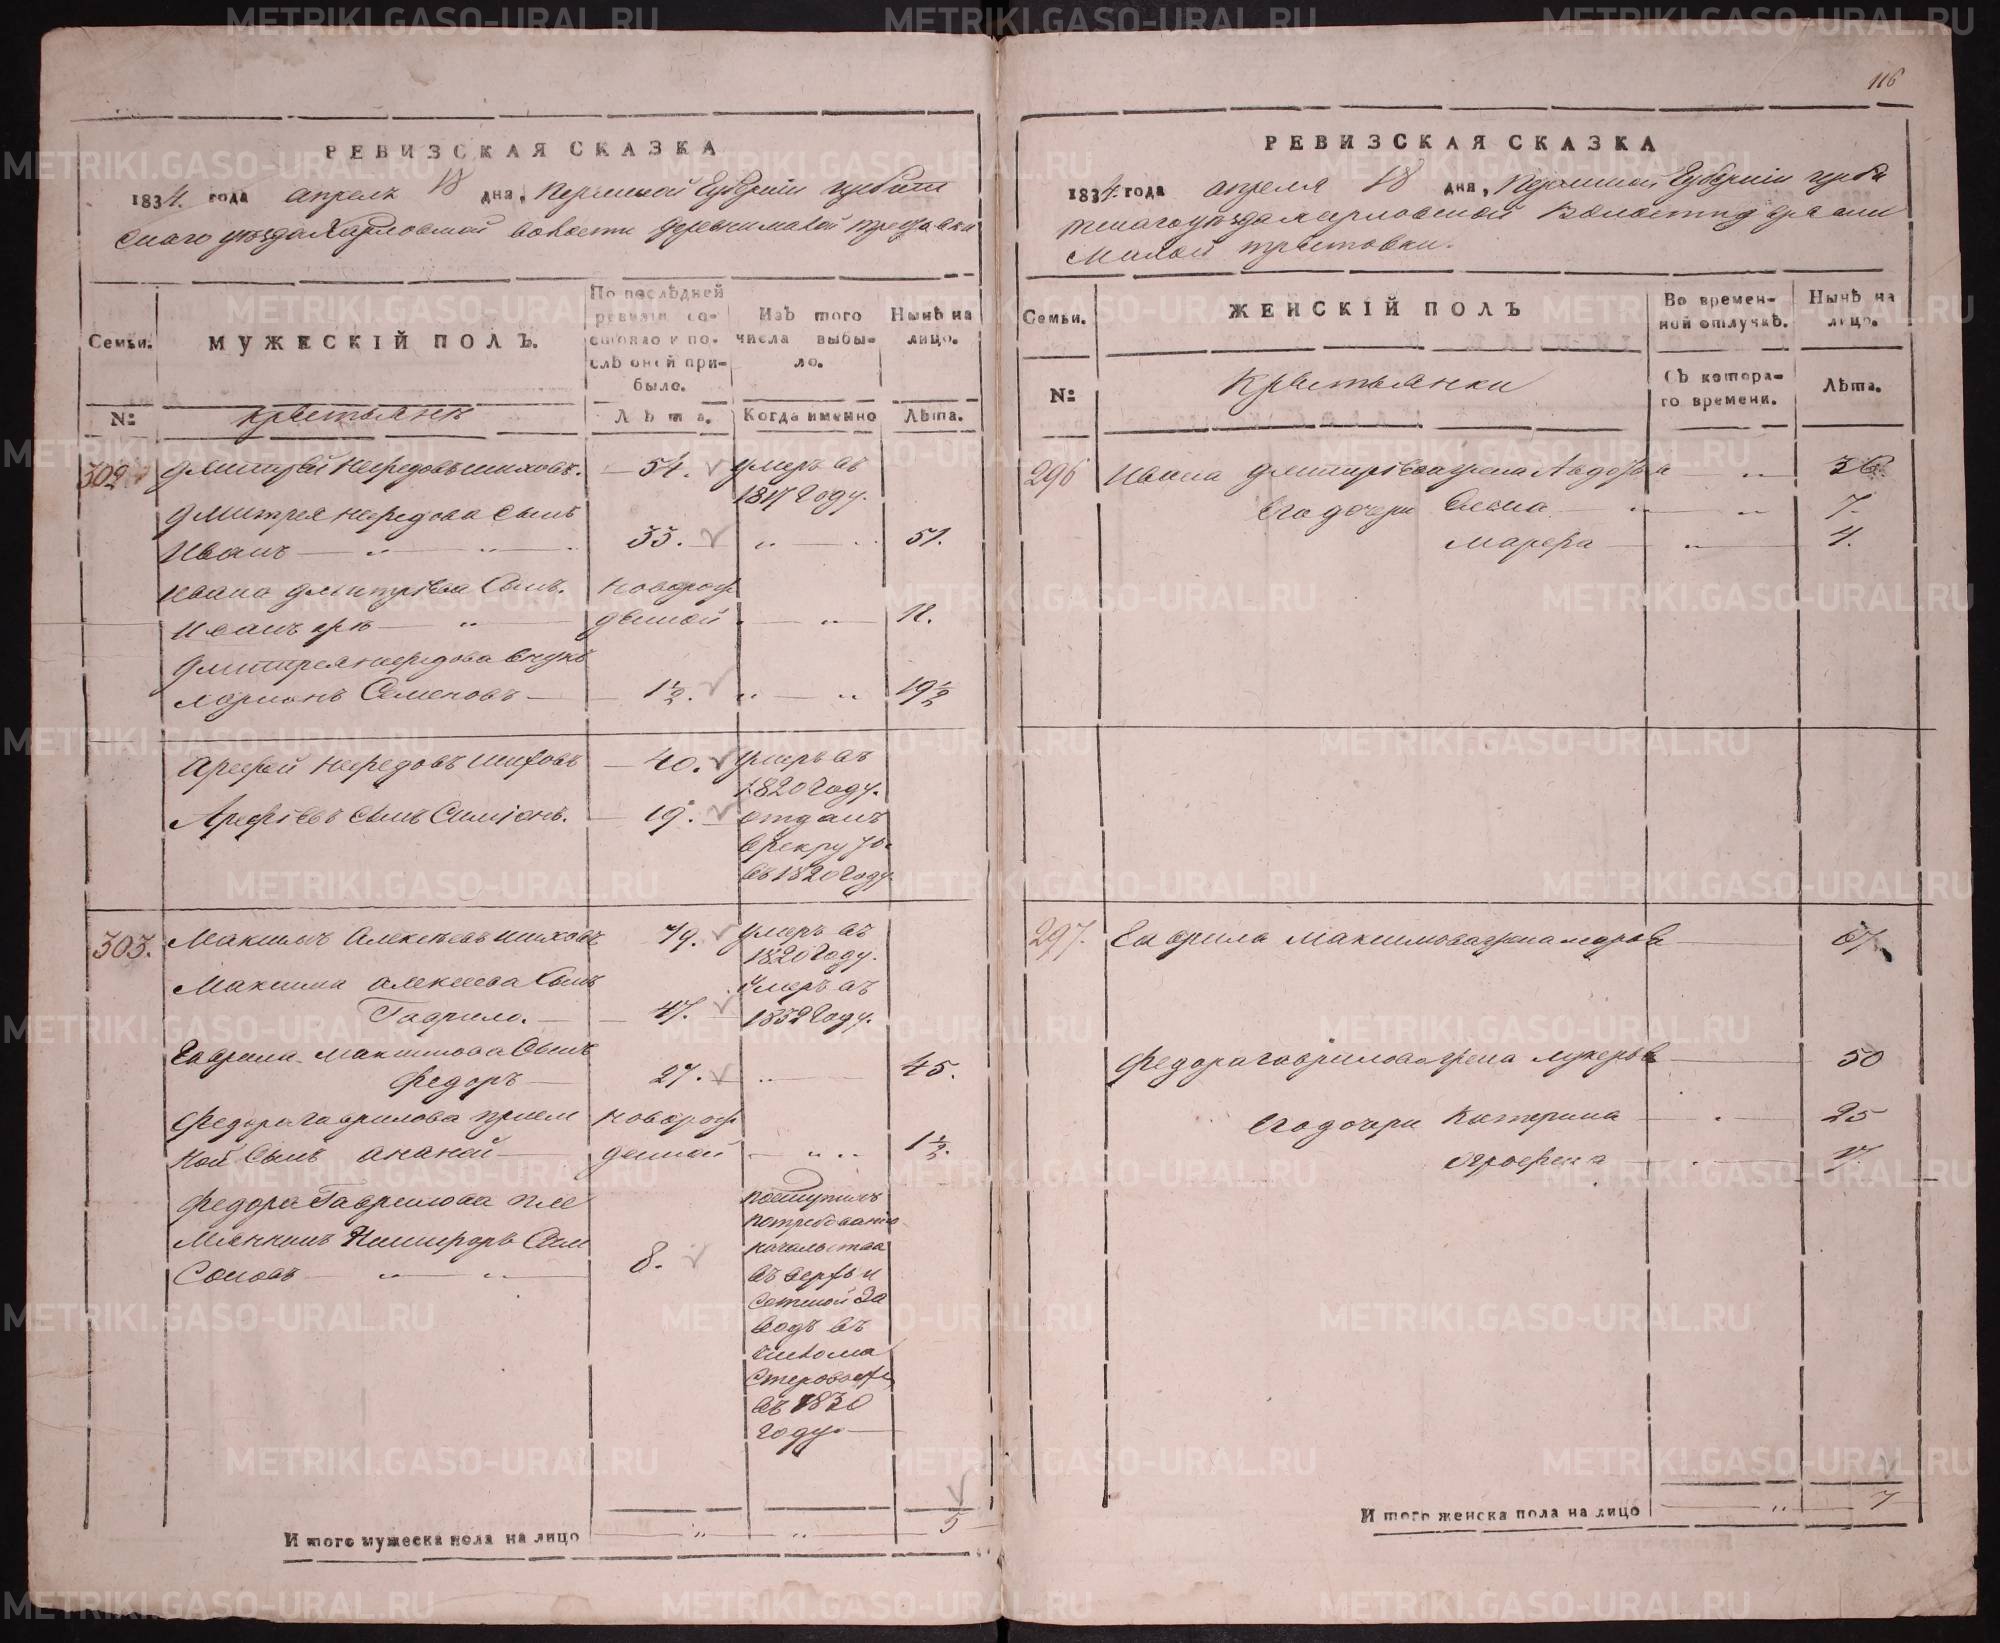 116
РЕВИЗСКАЯ СКАЗКА
1834. года апреля 18 дня, Пермской Губернии Ирбит
скаго уѣзда Харловской волости деревни малой
МУЖЕСКІЙ ПОЛЪ.
Семьи.
По послѣдней ревизіи состояло и послѣ оней прибыло.
Изъ того числа выбыло.
Нынѣ на лицо.
№
крестьянъ
Лѣта.
Когда именно
Лѣта.
302
Дмитрей Нефедовъ шиховъ. 54. умеръ въ
1817 году.
Дмитрея нефедова сынъ
Иванъ 33. 51.
Ивана дмитріева сынъ. новорож
Иванъ же денной 11.
Дмитрея нефедова внукъ
Ларионъ Семеновъ 1 1/2. 19 1/2
Арефей нефедовъ шиховъ 40. умеръ въ
1820 году.
Арефіевъ сынъ Симіонъ. 19. отданъ
в рекруты
въ 1820 году
303. Максимъ Алексѣевъ шиховъ 79. умеръ въ
1820 году.
Максима алексеева сынъ умеръ въ
Гаврило. 47. 1832 году.
Гаврила максимова сынъ
Федоръ 27. 45.
Федора гаврилова прием новорож
ной сынъ ананей денной 1 1/2.
Федора Гаврилова пле
мянникъ Никифоръ Сам
соновъ 8.
поступилъ
по требованію
начальства
въ верхъ и
сетской за
водъ въ
мастеровые
въ 1830
году
Итого мужеска пола на лицо 5
РЕВИЗСКАЯ СКАЗКА
1834. года апреля 18 дня, Пермской Губернии ирби
тскаго уѣзда харловской волости деревни
малой
Семьи.
ЖЕНСКІЙ ПОЛЪ
Во временной отлучкѣ.
Нынѣ на лицо.
№
Крестьянки
Съ котораго времени.
Лѣта.
296 Ивана дмитріева жена Авдотья 36.
Его дочери Елена 7.
Марфа 4.
297. Гаврила максимова жена марфа 67.
Федора гаврилова жена лукерья 50
Его дочери Катерина 25
Агрофена 17.
Итого женска пола на лицо 7
METRIKI.GASO-URAL.RU